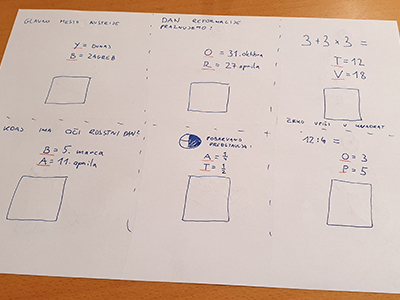 GLAVNO MESTO AVSTRIJE
Y = DUNAJ
B = ZAGREB
DAN REFORMACIJE
PRAZNUJEMO:
O = 31. oktobra
R = 27. aprila
3 + 3 × 3 =
T = 12
V = 18
KDAJ IMA OČI ROJSTNI DAN?
B = 5. marca
A = 11. aprila
POBARVANO
PREDSTAVLJA:
A = 1/4
T = 1/2
ČRKO VPIŠI V KVADRAT
12 : 4 =
O = 3
P = 5